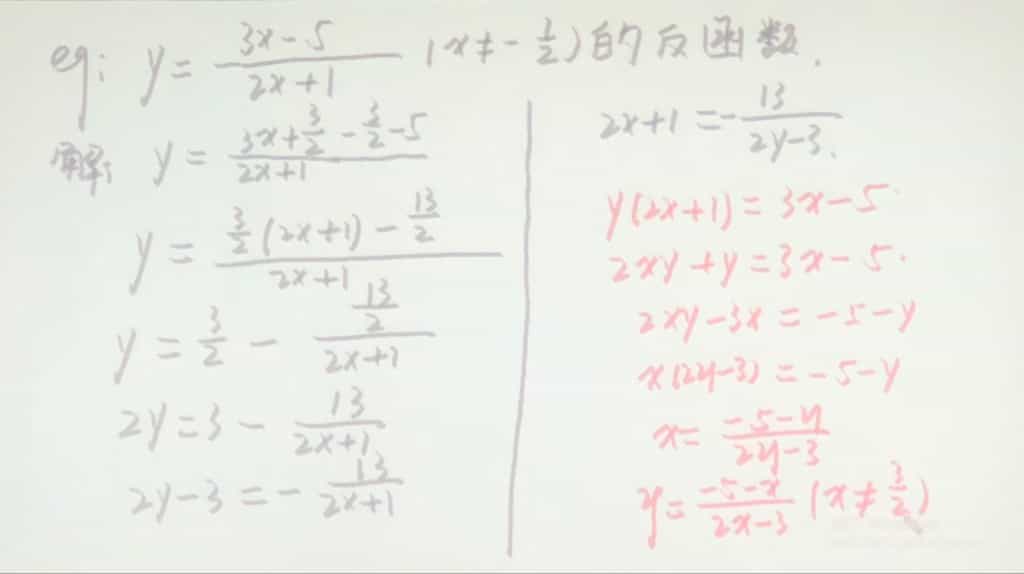 eg: y = (3x-5)/(2x+1) (x≠-1/2)的反函数.
解: y = (3x+3/2-3/2-5)/(2x+1)
y = (3/2(2x+1)-13/2)/(2x+1)
y = 3/2 - (13/2)/(2x+1)
2y = 3 - 13/(2x+1)
2y-3 = - 13/(2x+1)
2x+1 = - 13/(2y-3).
y(2x+1) = 3x-5.
2xy+y = 3x-5.
2xy-3x = -5-y
x(2y-3) = -5-y
x = (-5-y)/(2y-3)
y = (-5-x)/(2x-3) (x≠3/2)